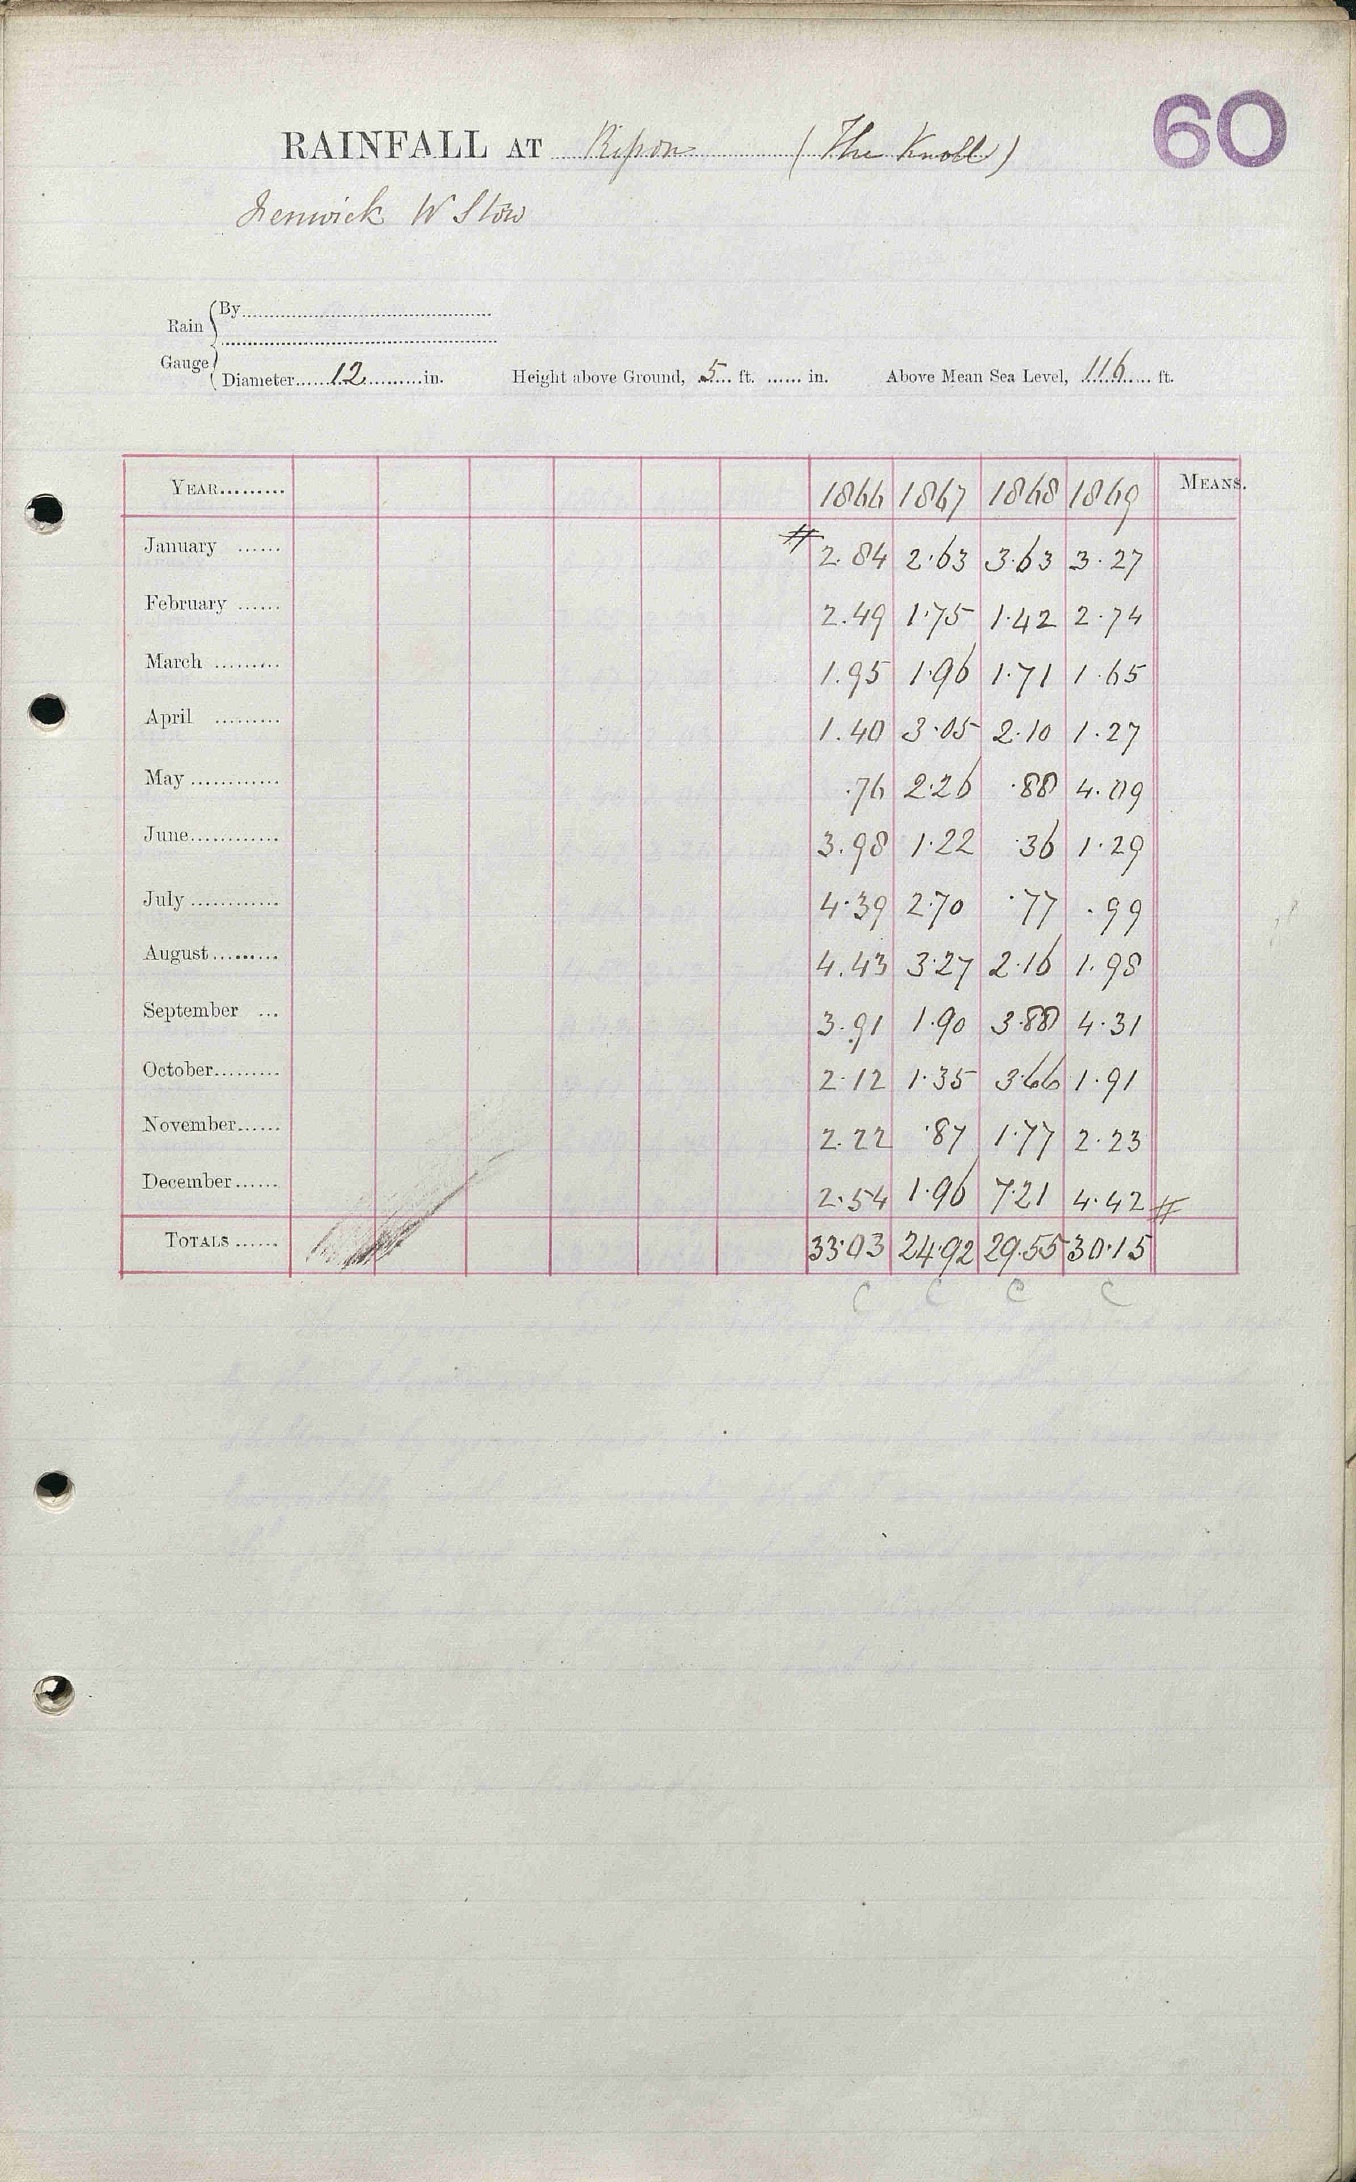 60
RAINFALL AT Ripon (The Knoll)
Fenwick W Stow
Rain Gauge
By
Diameter 12 in. Height above Ground, 5 ft. in. Above Mean Sea Level, 116 ft.
YEAR 1866 1867 1868 1869 MEANS.
January # 2.84 2.63 3.63 3.27
February 2.49 1.75 1.42 2.74
March 1.95 1.96 1.71 1.65
April 1.40 3.05 2.10 1.27
May .76 2.26 .88 4.09
June 3.98 1.22 .36 1.29
July 4.39 2.70 .77 .99
August 4.43 3.27 2.16 1.98
September 3.91 1.90 3.88 4.31
October 2.12 1.35 3.66 1.91
November 2.22 .87 1.77 2.23
December 2.54 1.96 7.21 4.42 #
TOTALS 33.03 24.92 29.55 30.15
C C C C